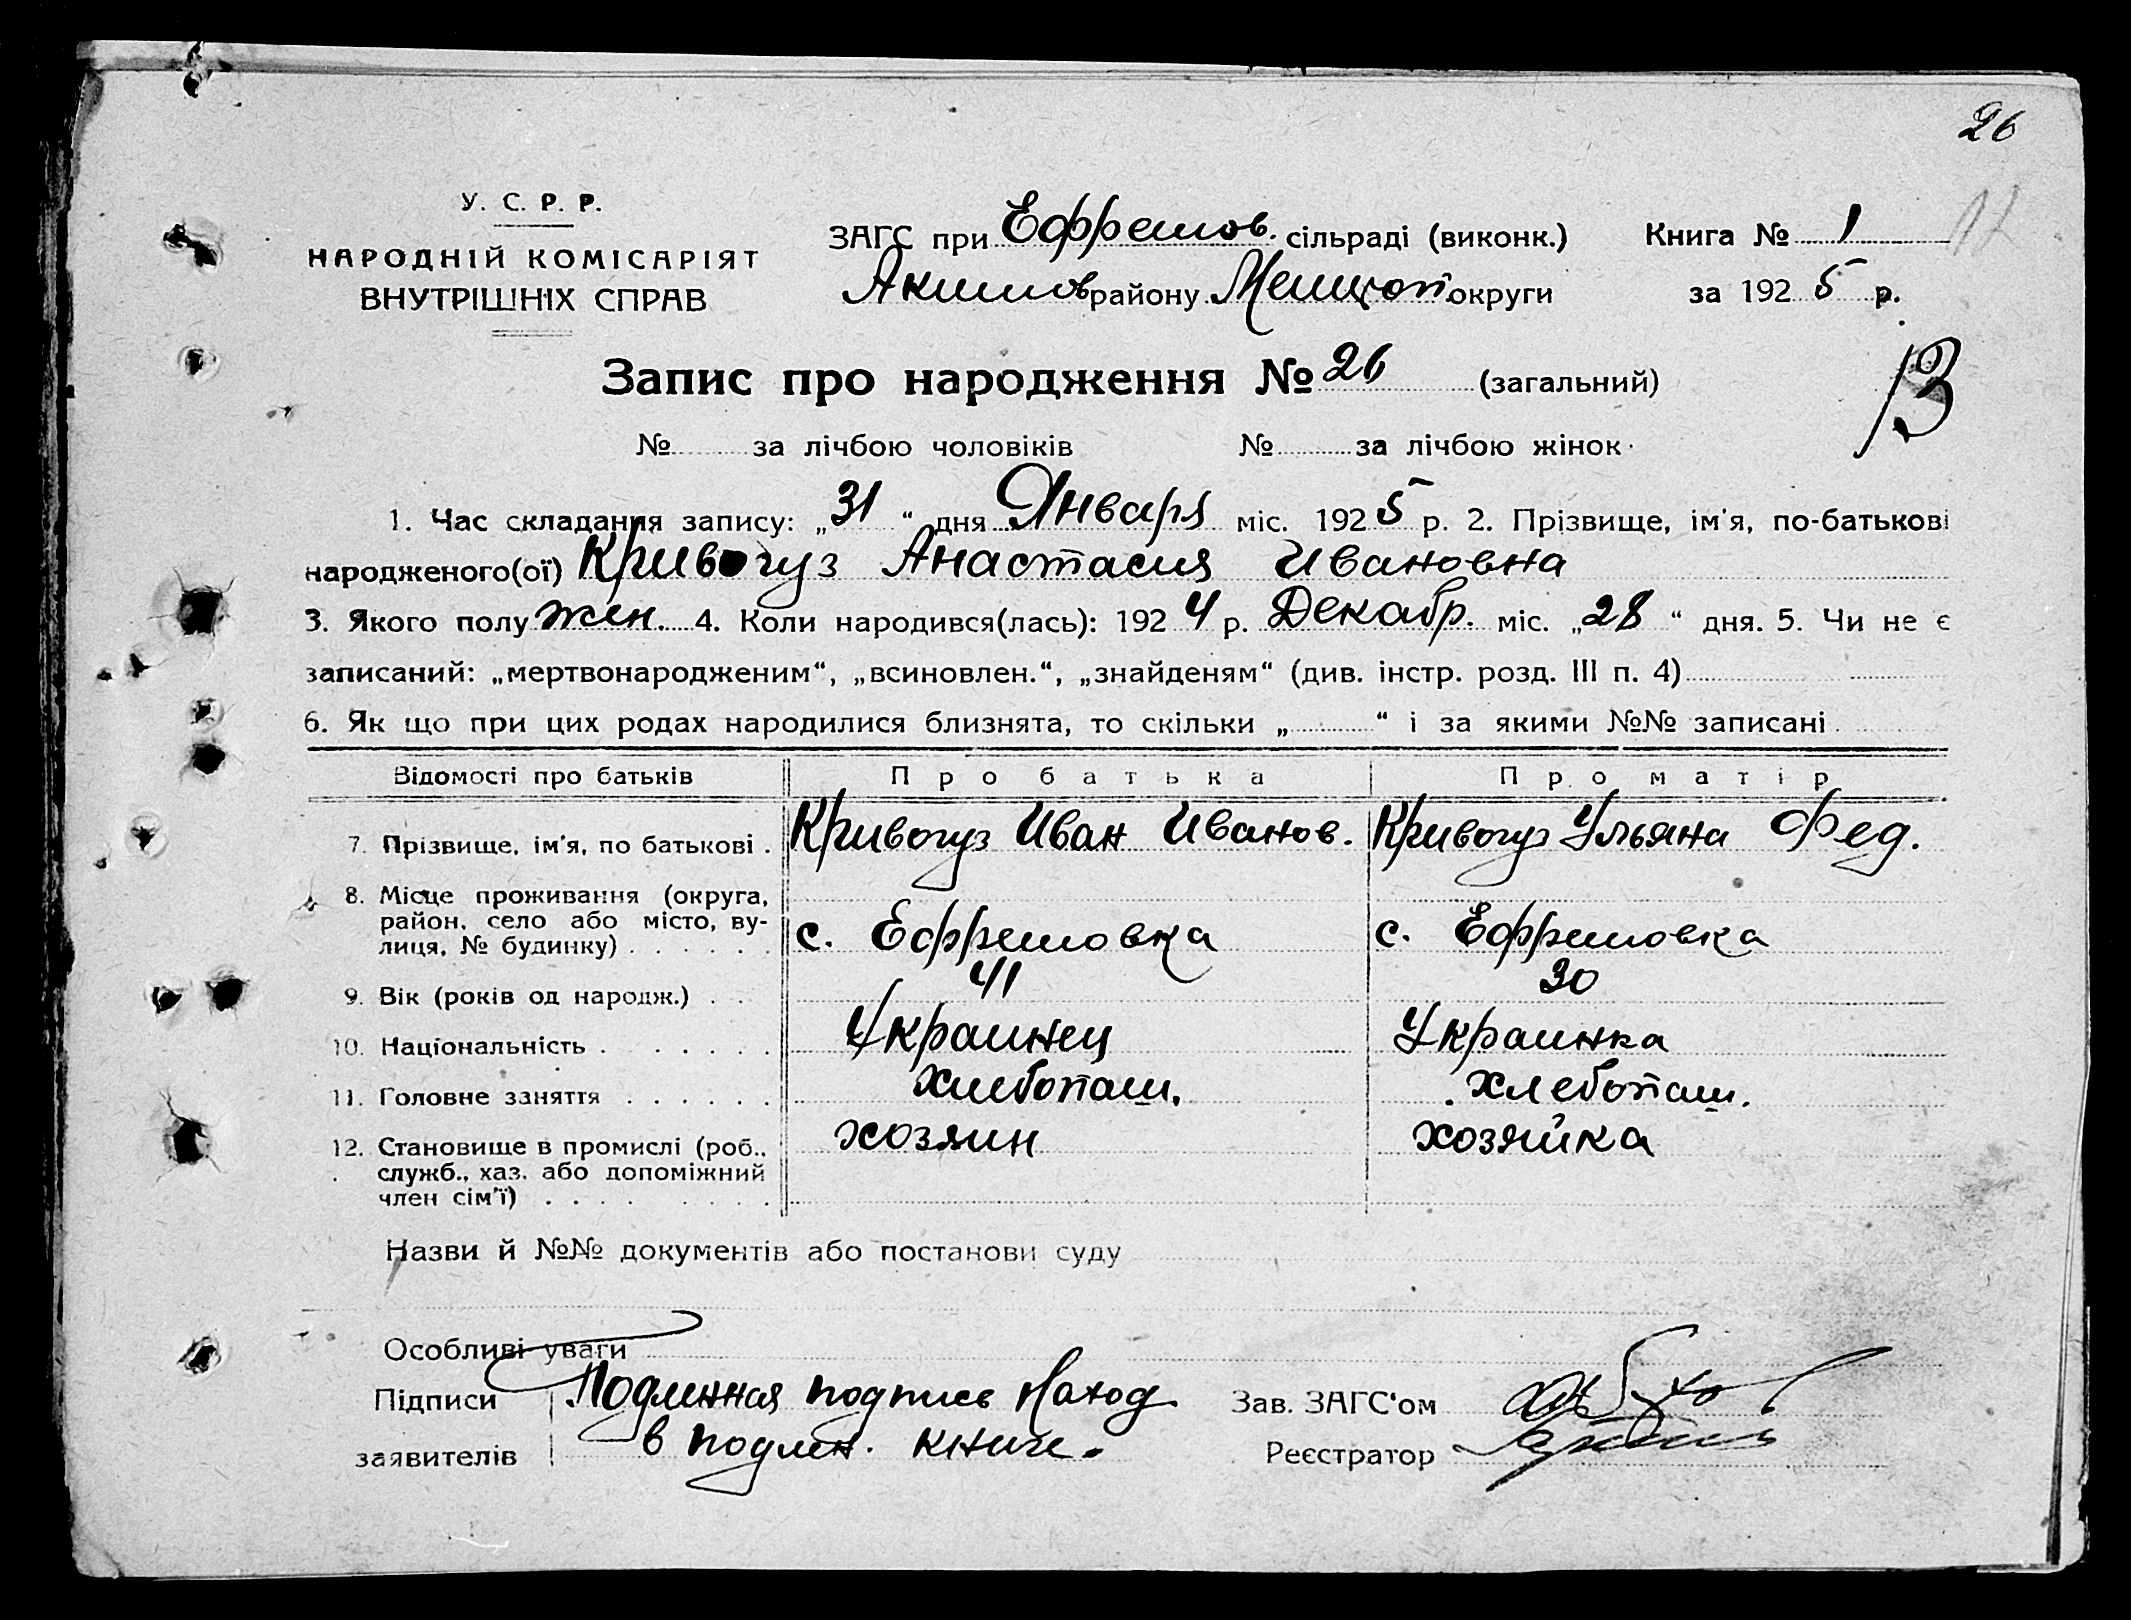 26
У. С. Р. Р.
НАРОДНІЙ КОМІСАРІЯТ
ВНУТРІШНІХ СПРАВ
ЗАГС при Ефремов. сільраді (виконк.)
Акимов району Мелитоп. округи
Книга № 1
12
за 1925 р.
Запис про народження № 26 (загальний)
13
№ за лічбою чоловіків № за лічбою жінок
1. Час складання запису: „31“ дня Января міс. 1925 р. 2. Прізвище, ім'я, по-батькові
народженого(ої) Кривогуз Анастасия Ивановна
3. Якого полу жен. 4. Коли народився(лась): 1924 р. Декабр. міс. „28“ дня. 5. Чи не є
записаний: „мертвонародженим“, „всиновлен.“, „знайденям“ (див. інстр. розд. III п. 4)
6. Як що при цих родах народилися близнята, то скільки „ “ і за якими №№ записані
Відомості про батьків Про батька Про матір
7. Прізвище, ім'я, по батькові . Кривогуз Иван Иванов. Кривогуз Ульяна Фед.
8. Місце проживання (округа,
район, село або місто, ву-
лиця, № будинку) . . . . . . с. Ефремовка с. Ефремовка
9. Вік (років од народж.) . . 41 30
10. Національність . . . . . . Украинец Украинка
11. Головне заняття . . . . . . хлебопаш. хлебопаш.
12. Становище в промислі (роб., хозяин хозяйка
служб., хаз. або допоміжний
член сім'ї) . . . . . . . .
Назви й №№ документів або постанови суду
Особливі уваги
Підписи Подлинная подпись наход
заявителів в подлен. книге.
Зав. ЗАГС'ом
Реєстратор